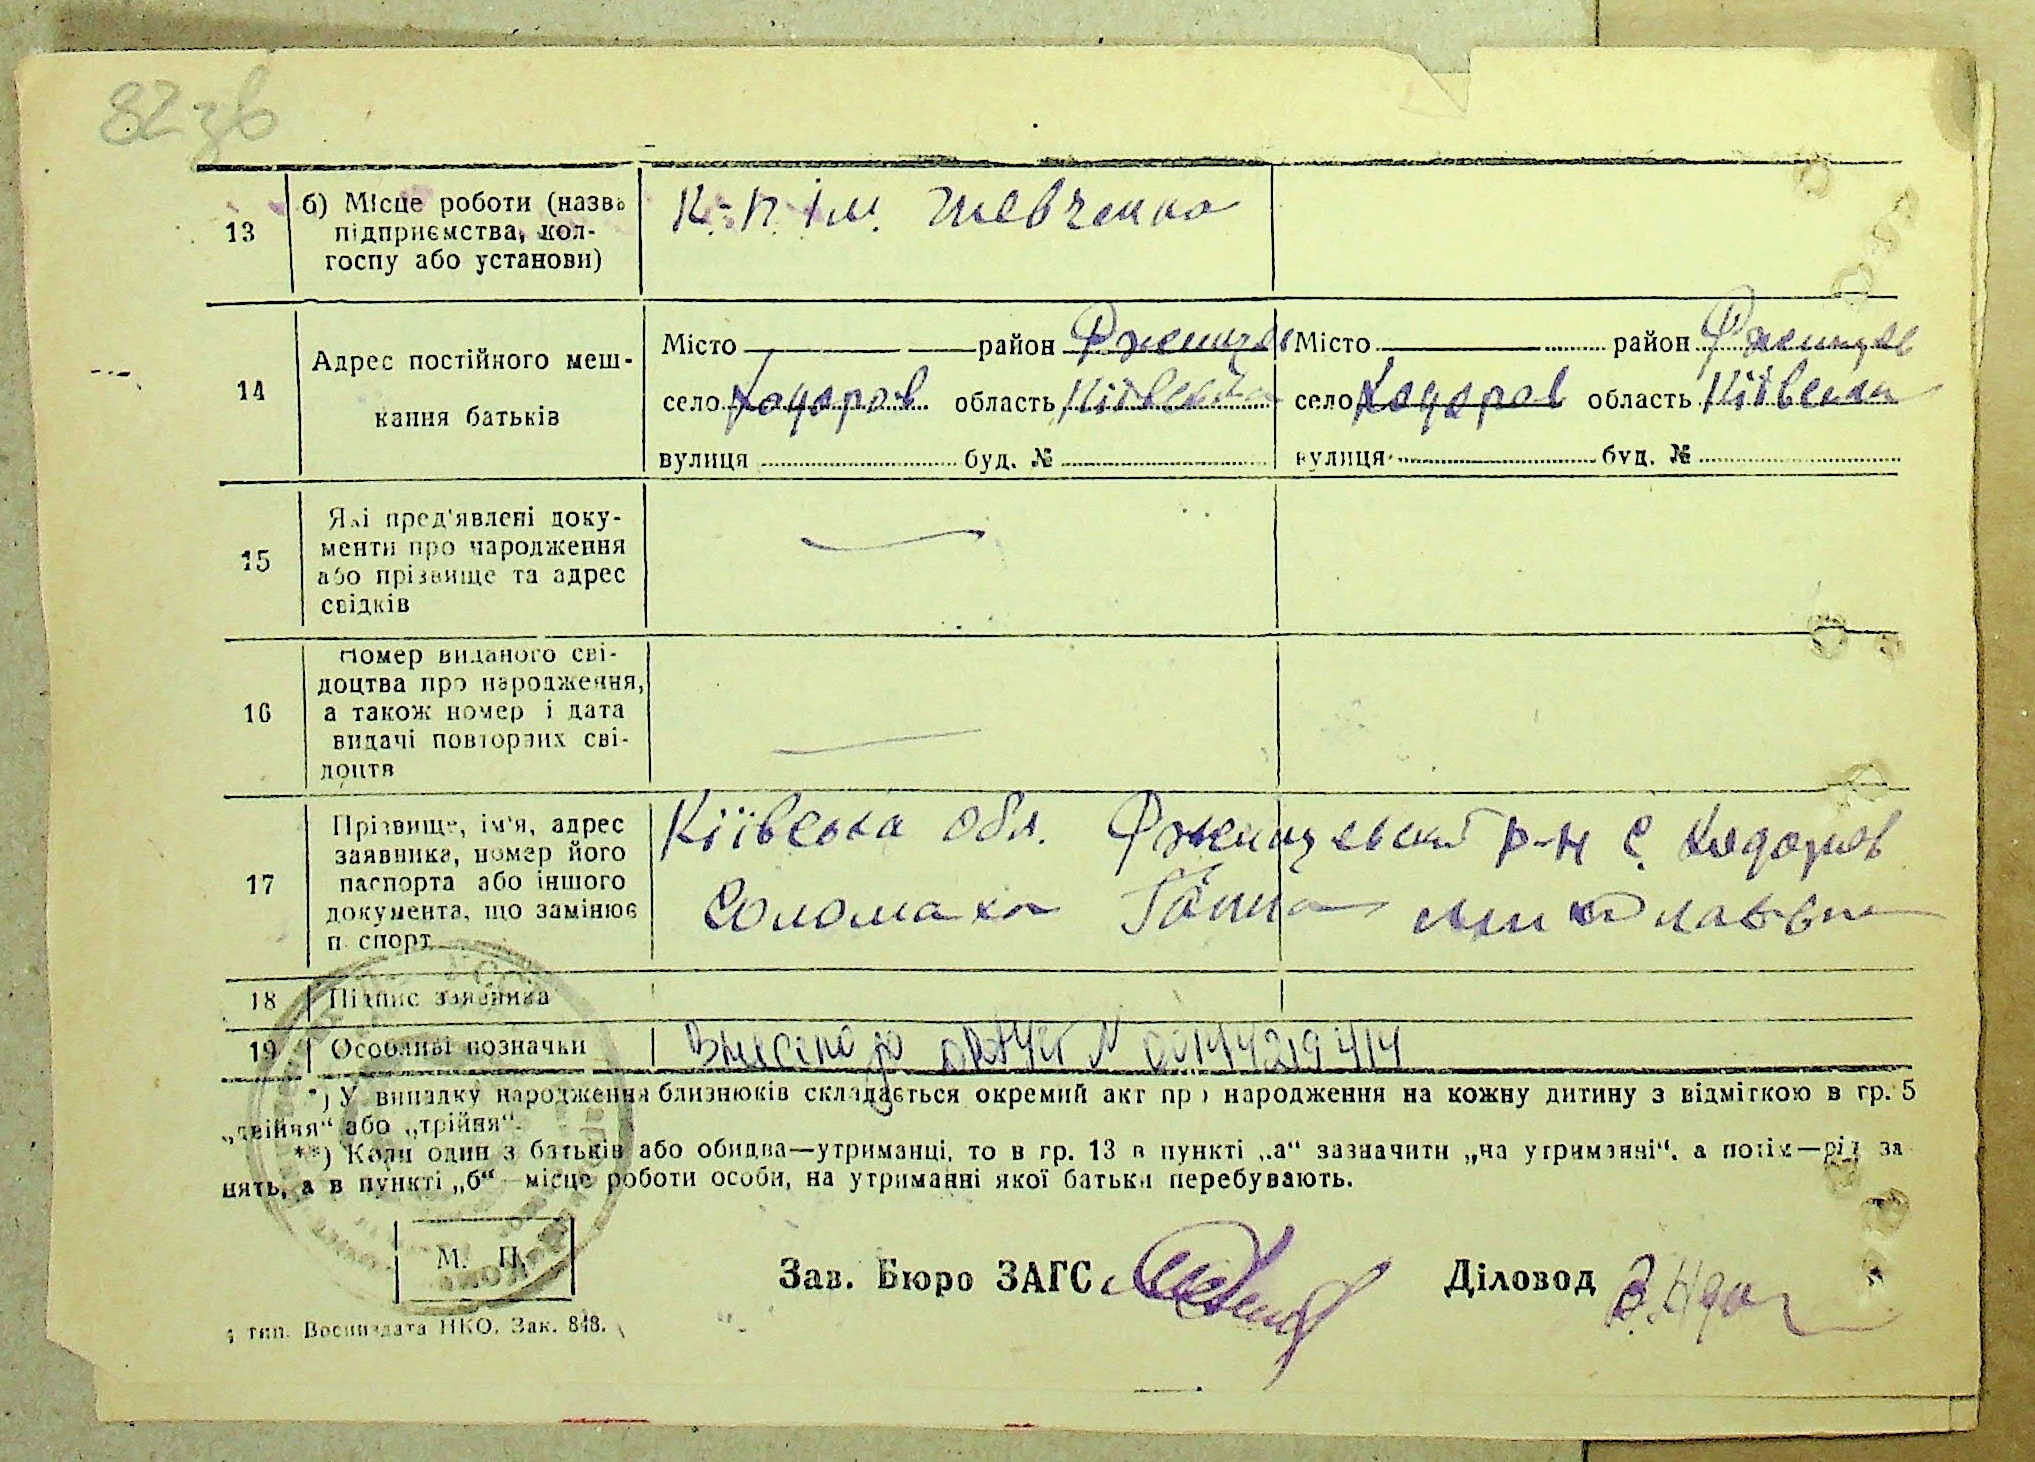 82 зв
13
б) Місце роботи (назва
підприємства, кол-
госпу або установи)
К-п ім. Шевченка
14
Адрес постійного меш-
кання батьків
Місто район Ржищев
село Ходоров область Київська
вулиця буд. №
Місто район Ржищев
село Ходоров область Київська
вулиця буд. №
15
Які пред'явлені доку-
менти про народження
або прізвище та адрес
свідків
16
Номер виданого сві-
доцтва про народження,
а також номер і дата
видачі повторних сві-
доцтв
17
Прізвище, ім'я, адрес
заявника, номер його
паспорта або іншого
документа, що замінює
паспорт
Київська обл. Ржищевский р-н с. Ходоров
Соломаха Ганна Миколаевна
18
Підпис заявника
19
Особливі позначки
Внесено до № 00144219414
*) У випадку народження близнюків складається окремий акт про народження на кожну дитину з відміткою в гр. 5
„двійня“ або „трійня“.
**) Коли один з батьків або обидва—утриманці, то в гр. 13 в пункті „а“ зазначити „на утриманні“, а потім—рід за
нять, а в пункті „б“ місце роботи особи, на утриманні якої батьки перебувають.
М. П.
Зав. Бюро ЗАГС
Діловод
тип. Воениздата НКО. Зак. 848.